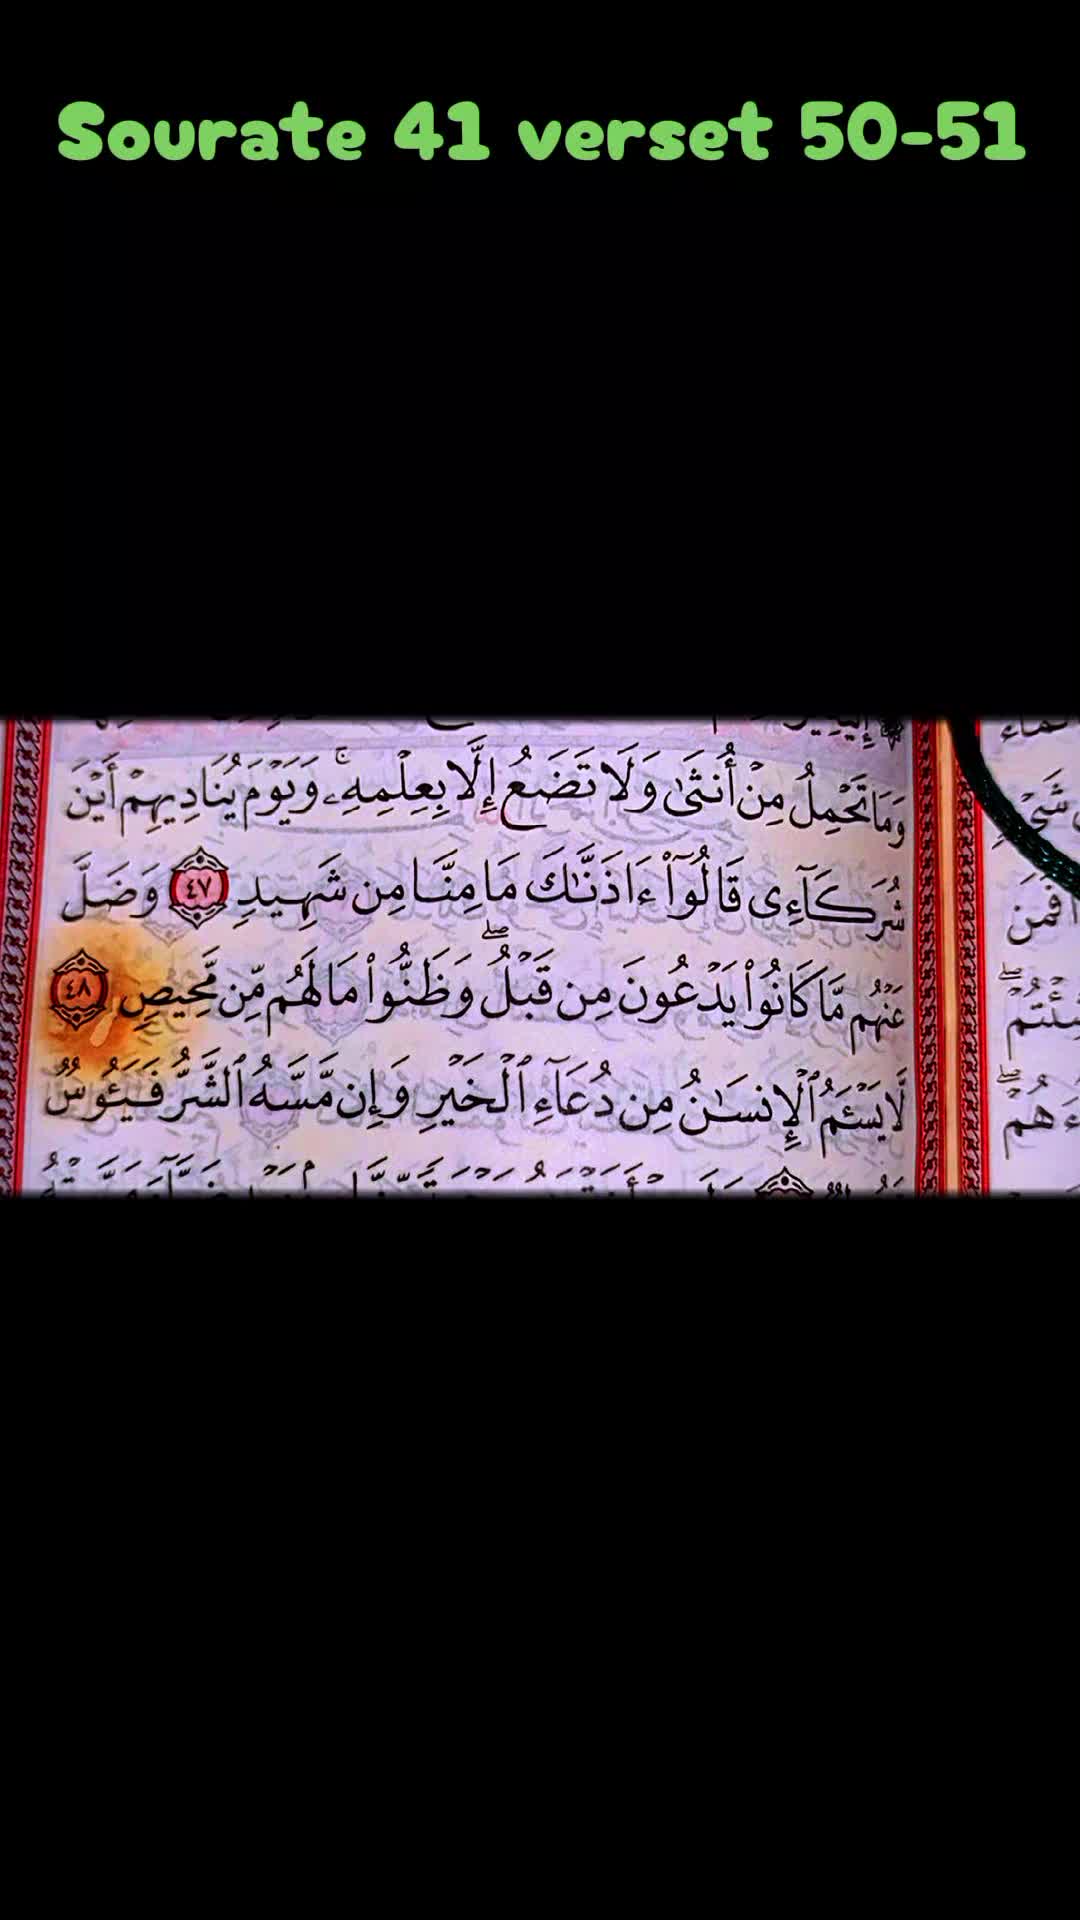 Sourate 41 verset 50-51
وَمَا تَحْمِلُ مِنْ أُنثَىٰ وَلَا تَضَعُ إِلَّا بِعِلْمِهِۦ ۚ وَيَوْمَ يُنَادِيهِمْ أَيْنَ
شُرَكَآءِى قَالُوٓا۟ ءَاذَنَّـٰكَ مَا مِنَّا مِن شَهِيدٍ ٤٧ وَضَلَّ
عَنْهُم مَّا كَانُوا۟ يَدْعُونَ مِن قَبْلُ ۖ وَظَنُّوا۟ مَا لَهُم مِّن مَّحِيصٍ ٤٨
لَّا يَسْـَٔمُ ٱلْإِنسَـٰنُ مِن دُعَآءِ ٱلْخَيْرِ وَإِن مَّسَّهُ ٱلشَّرُّ فَيَـُٔوسٌ